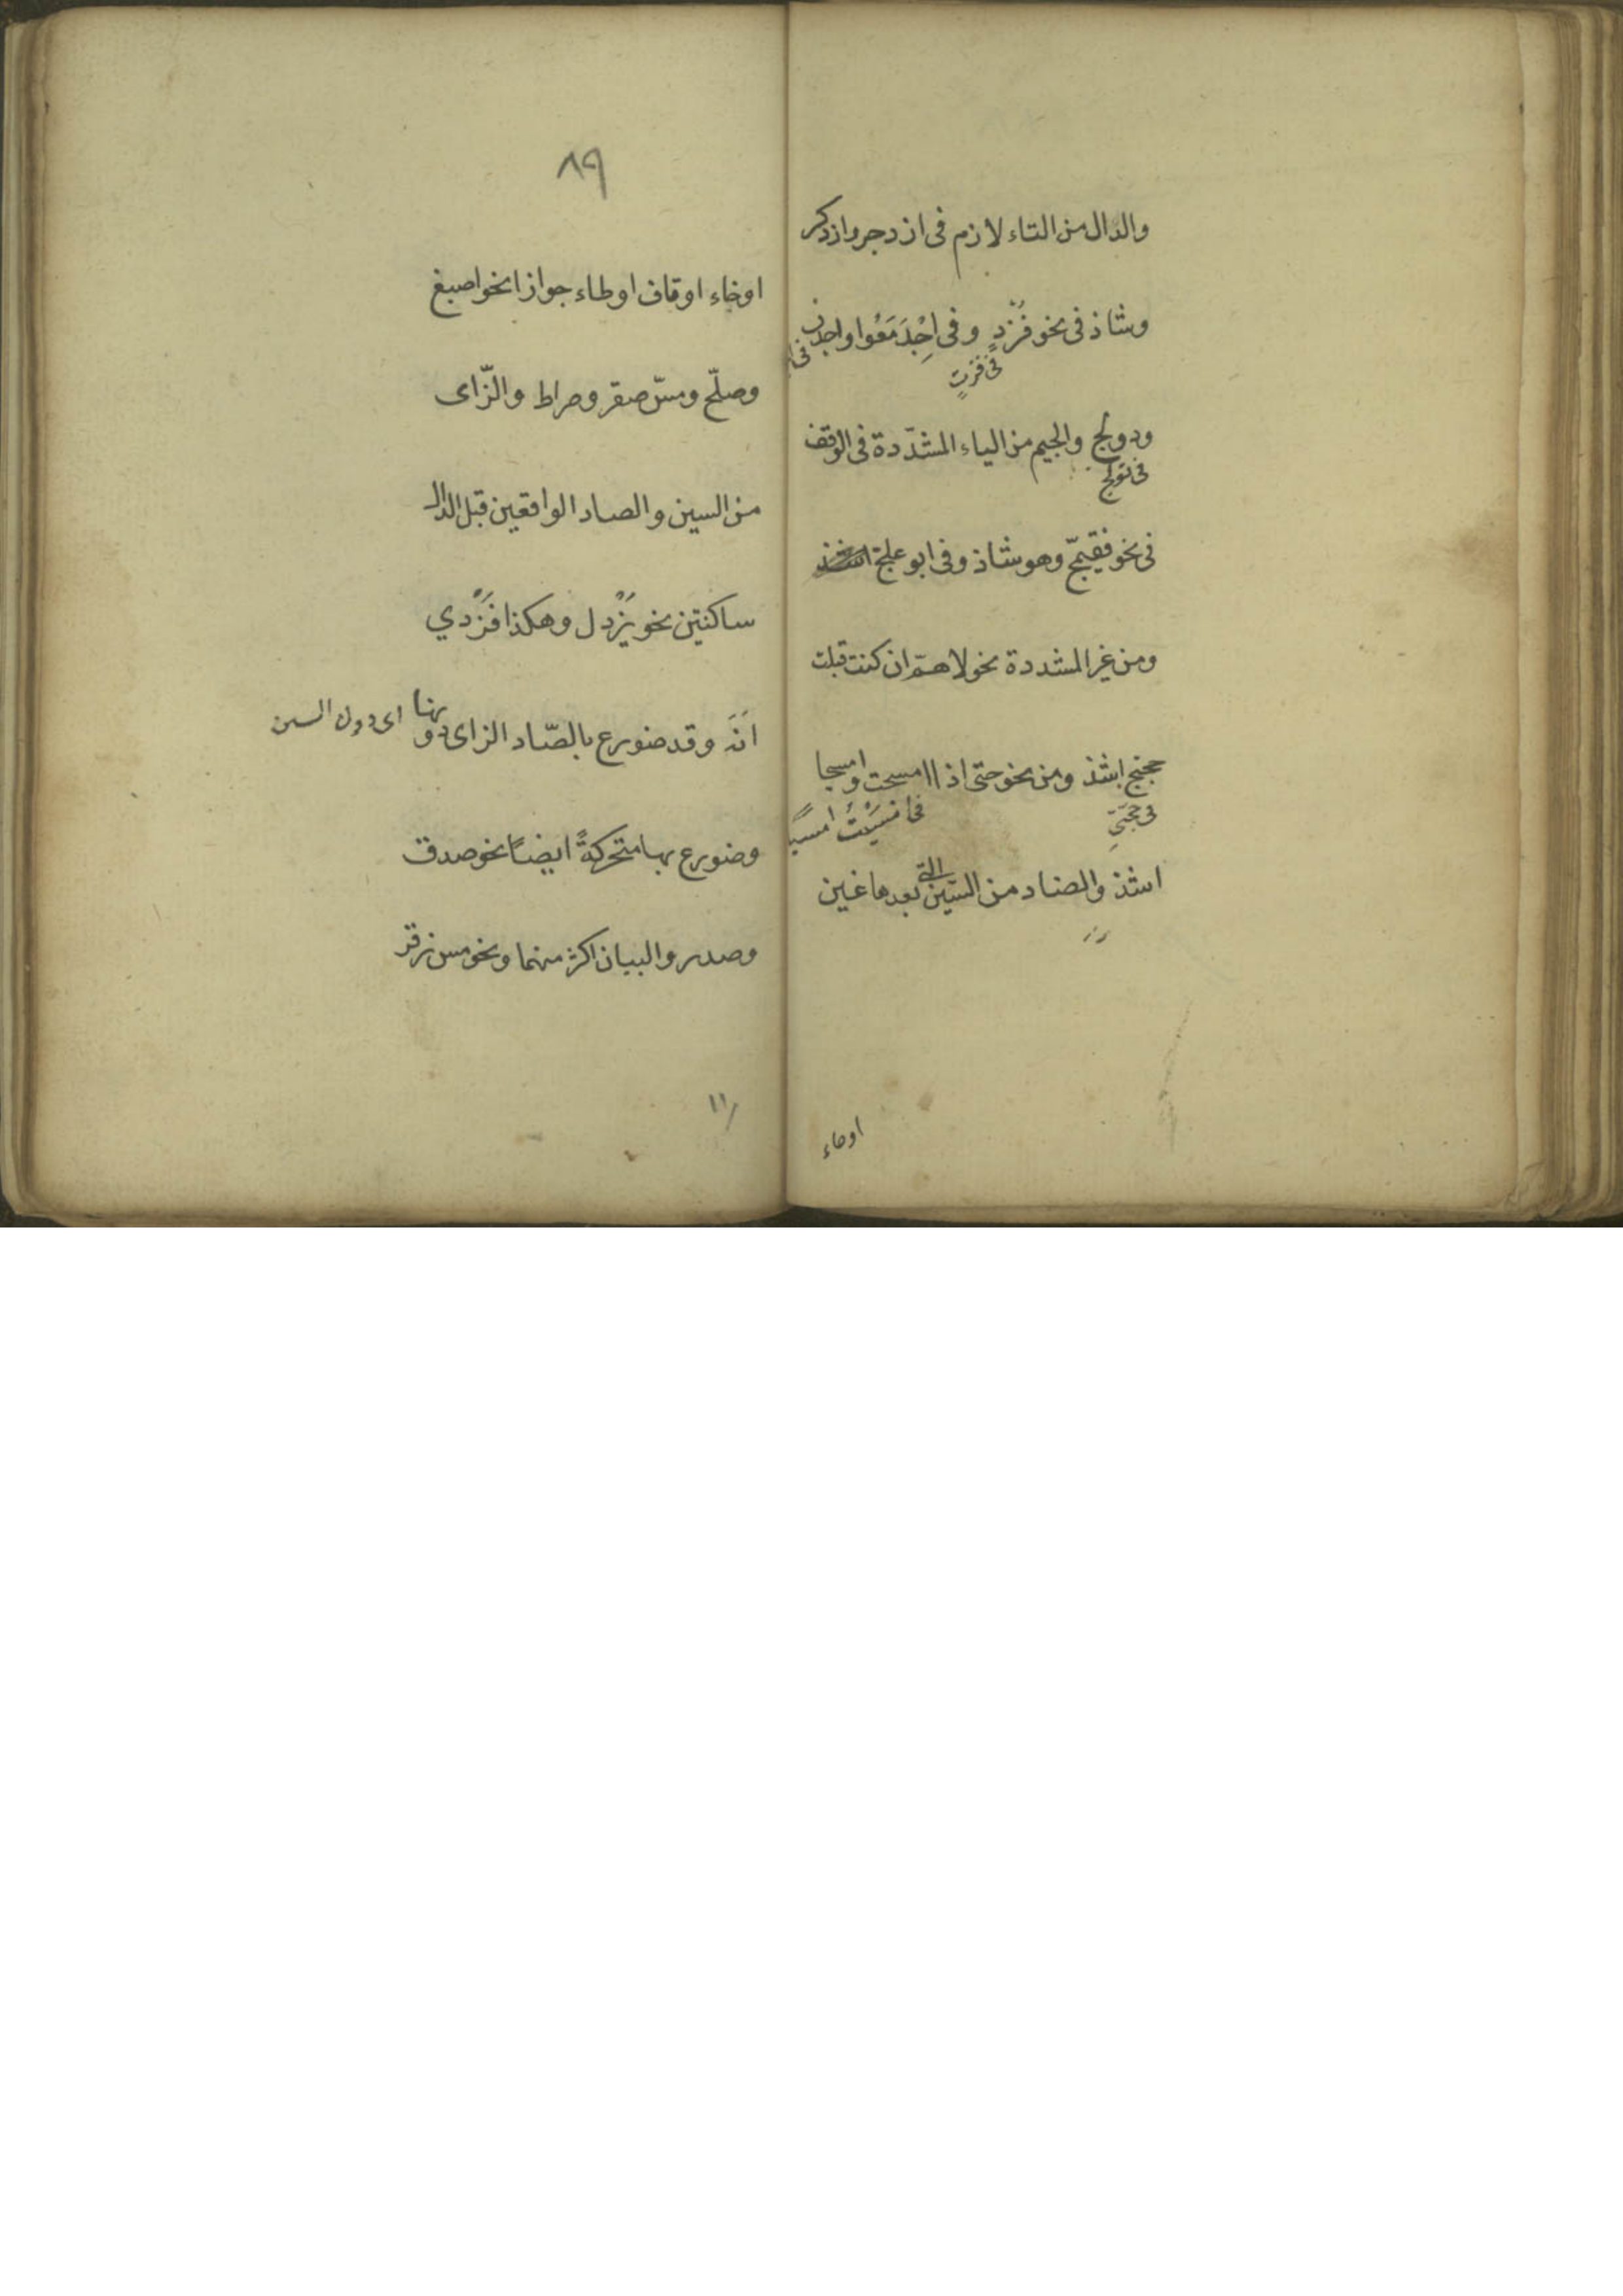 والدال من التاء لازم فى ازدجر وازدكر
وشاذ فى نحو فُزْدٍ وفى اِجْدَمَعُوا واجدز
فى فزت
ودولج والجيم من الياء المشدّدة فى الوقف
فى تولج
فى نحو فقيمجّ وهو شاذ وفى ابو علج
ومن غير المشددة نحو لاهمّ ان كنت قبلت
حجتج اشذ ومن نحو حتى اذا امسجت وامسجا
فى حجتى
فى امسيت
اشذ والصاد من السّين التى بعدها غين
اوخاء
٨٩
اوخاء اوقاف اوطاء جوازا نحو اصبغ
وصلّخ ومسّ صقر وصراط والزّاى
من السين والصاد الواقعين قبل الدال
ساكنتين نحو يَزْدل وهكذا فَزْدي
انَهْ وقد ضورع بالصّاد الزاى دونها
اى دون السين
وضورع بها متحركةً ايضاً نحو صدق
وصدر والبيان اكثر منهما ونحو مس زقر
١١